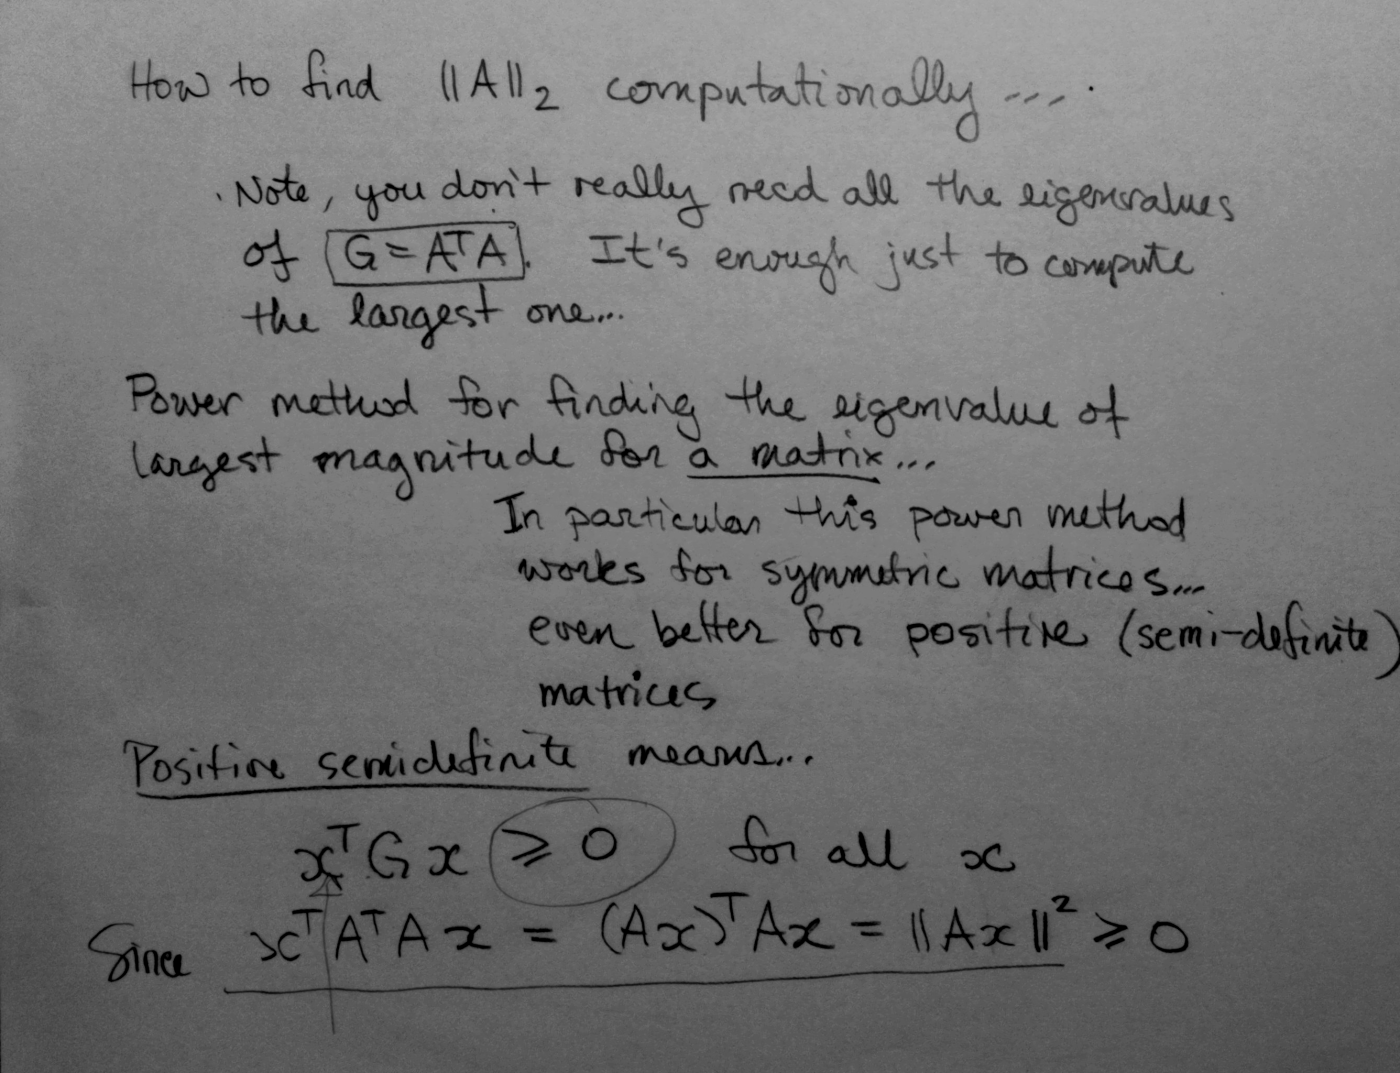 How to find ||A||₂ computationally....
Note, you don't really need all the eigenvalues
of G=AᵀA. It's enough just to compute
the largest one...
Power method for finding the eigenvalue of
largest magnitude for a matrix...
In particular this power method
works for symmetric matrices...
even better for positive (semi-definite)
matrices
Positive semidefinite means...
xᵀGx ≥ 0 for all x
Since xᵀAᵀAx = (Ax)ᵀAx = ||Ax||² ≥ 0